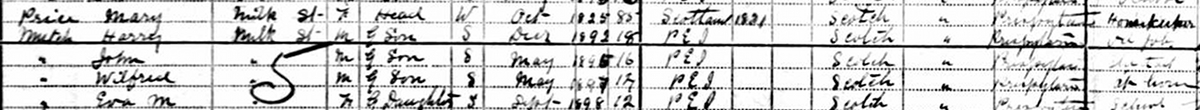 Price Mary Milk St F Head W Oct 1825 85 Scotland 1831 Scotch " Presbyterian Housekeeper
Mutch Harry Milk St M G Son S Dec 1892 18 P E I Scotch " Presbyterian Odd job
" John " M G Son S May 1895 16 P E I Scotch " Presbyterian
" Wilfred " M G Son S May P E I Scotch " Presbyterian at home
" Eva M " F G Daughter S Sept 1898 12 P E I Scotch " Presbyterian School